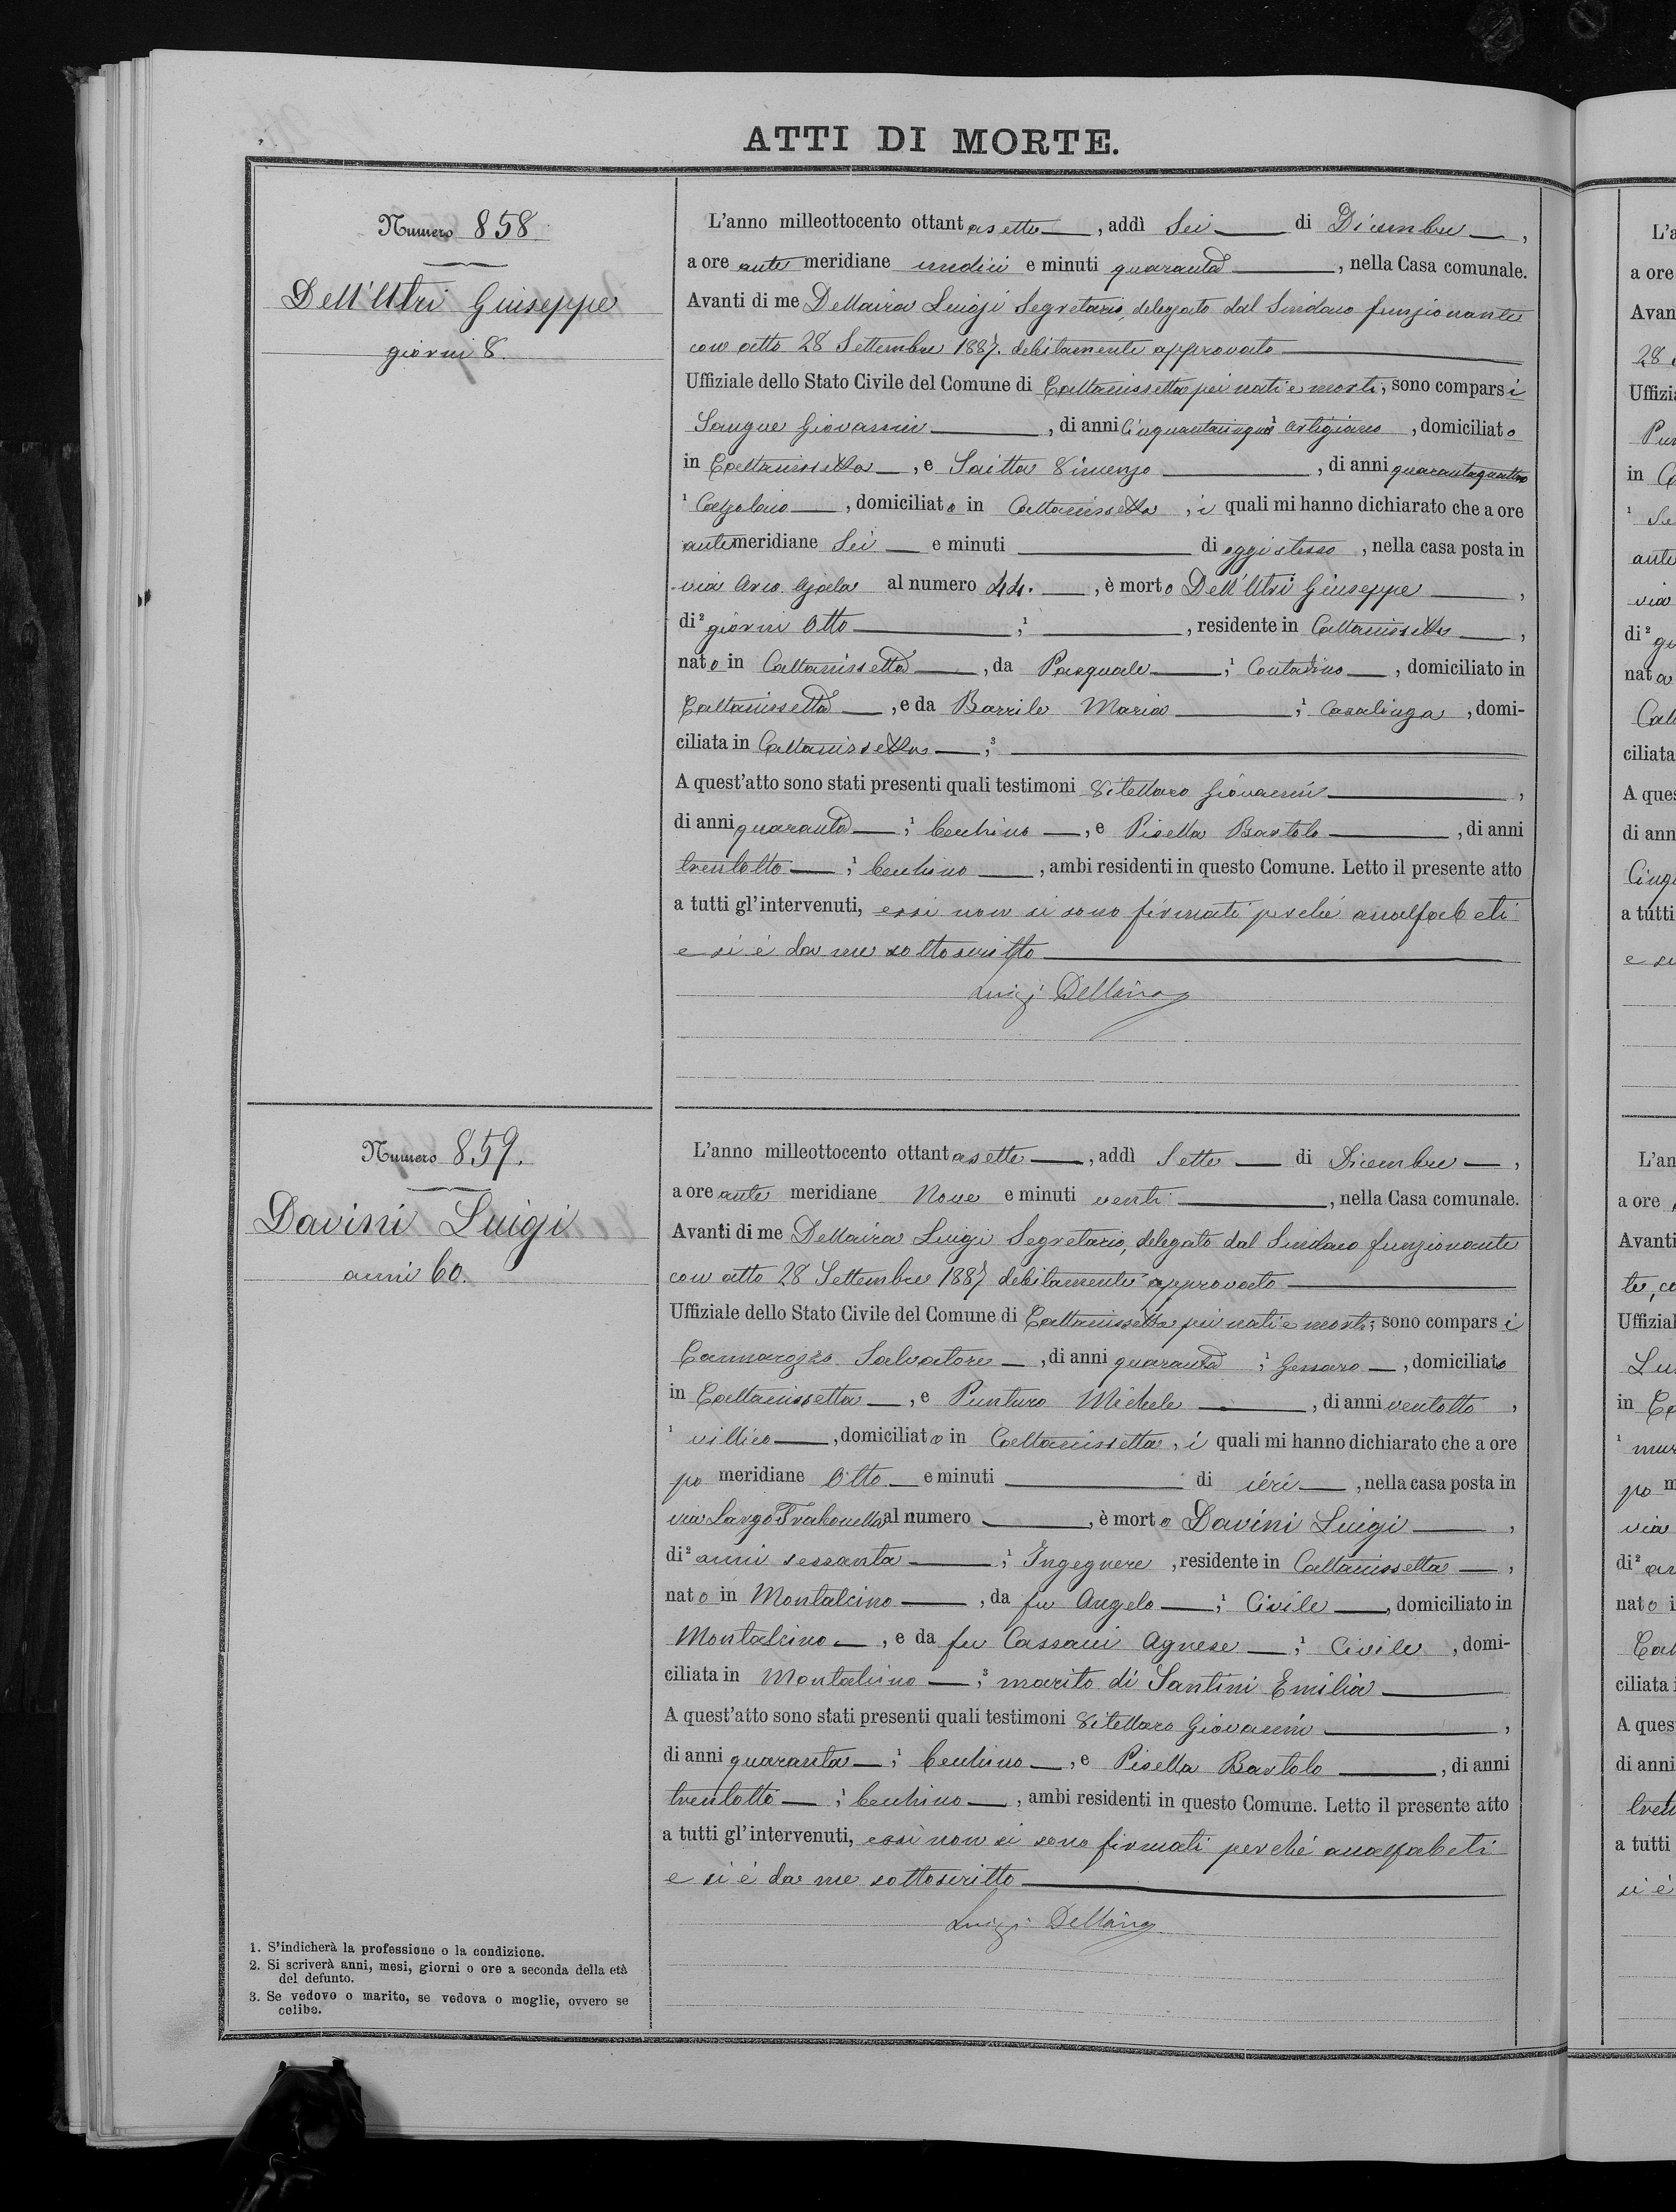 ATTI DI MORTE.
Numero 858.
Dell'Utri Giuseppe
giorni 8.
L'anno milleottocento ottantasette, addì Sei di Dicembre,
a ore ante meridiane undici e minuti quaranta, nella Casa comunale.
Avanti di me Dellaira Luigi Segretario, delegato dal Sindaco funzionante
con atto 28 Settembre 1887. debitamente approvato
Uffiziale dello Stato Civile del Comune di Caltanissetta pei nati e morti, sono comparsi
Sangue Giovanni, di anni Cinquantacinque ¹ artigiano, domiciliato
in Caltanissetta, e Saitta Vincenzo, di anni quarantaquattro
¹ Calzolaio, domiciliato in Caltanissetta, i quali mi hanno dichiarato che a ore
antemeridiane Sei e minuti di oggi stesso, nella casa posta in
via Arco Ajala al numero 44., è morto Dell'Utri Giuseppe,
di² giorni Otto ;¹ , residente in Caltanissetta,
nato in Caltanissetta, da Pasquale ;¹ Contadino, domiciliato in
Caltanissetta, e da Barrile Maria ;¹ Casalinga, domi-
ciliata in Caltanissetta ;³
A quest'atto sono stati presenti quali testimoni Vitellaro Giovanni,
di anni quaranta ;¹ becchino, e Pisella Bartolo, di anni
trentotto ;¹ becchino, ambi residenti in questo Comune. Letto il presente atto
a tutti gl'intervenuti, essi non si sono firmati perché analfabeti
e si è da me sottoscritto
Luigi Dellaira
Numero 859.
Davini Luigi
anni 60.
L'anno milleottocento ottantasette, addì Sette di Dicembre,
a ore ante meridiane Nove e minuti venti, nella Casa comunale.
Avanti di me Dellaira Luigi Segretario, delegato dal Sindaco funzionante
con atto 28 Settembre 1887 debitamente approvato
Uffiziale dello Stato Civile del Comune di Caltanissetta pei nati e morti, sono comparsi
Cannarozzo Salvatore, di anni quaranta ;¹ Gessaro, domiciliato
in Caltanissetta, e Punturo Michele, di anni ventotto,
¹ villico, domiciliato in Caltanissetta, i quali mi hanno dichiarato che a ore
po meridiane Otto e minuti di ieri, nella casa posta in
via Largo Trabonella al numero , è morto Davini Luigi,
di² anni sessanta ;¹ Ingegnere, residente in Caltanissetta,
nato in Montalcino, da fu Angelo ;¹ Civile, domiciliato in
Montalcino, e da fu Cassani Agnese ;¹ Civile, domi-
ciliata in Montalcino ;³ marito di Santini Emilia
A quest'atto sono stati presenti quali testimoni Vitellaro Giovanni,
di anni quaranta ;¹ becchino, e Pisella Bartolo, di anni
trentotto ;¹ becchino, ambi residenti in questo Comune. Letto il presente atto
a tutti gl'intervenuti, essi non si sono firmati perché analfabeti
e si è da me sottoscritto
Luigi Dellaira
1. S'indicherà la professione o la condizione.
2. Si scriverà anni, mesi, giorni o ore a seconda della età
del defunto.
3. Se vedovo o marito, se vedova o moglie, ovvero se
celibe.